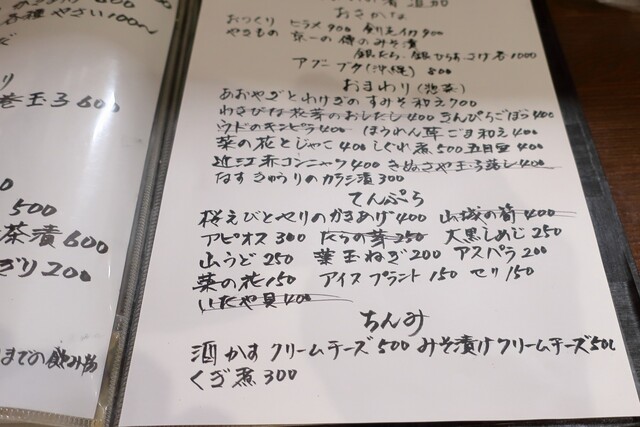 各種やさい100〜
巻玉子600
500
茶漬600
ぎり200
までの飲み物
おさかな
おつくり ヒラメ900 剣先イカ900
やきもの 京一の傳のみそ漬
銀だら・銀ひらす・さけ 各1000
アブニブク(沖縄) 800
おまわり(惣菜)
あおやぎとわけぎのすみそ和え700
わさびな花芽のおしたし400 きんぴらごぼう400
ウドのキンピラ400 ほうれん草ごま和え400
菜の花とじゃこ400 しぐれ煮500 五目豆400
近江赤コンニャク400 きぬさや玉子落し400
なすきゅうりのカラシ漬300
てんぷら
桜えびとやりのかきあげ400 山城の筍400
アピオス300 たらの芽250 大黒しめじ250
山うど250 葉玉ねぎ200 アスパラ200
菜の花150 アイスプラント150 セリ150
いたや貝400
ちんみ
酒かすクリームチーズ500 みそ漬けクリームチーズ500
くぎ煮300